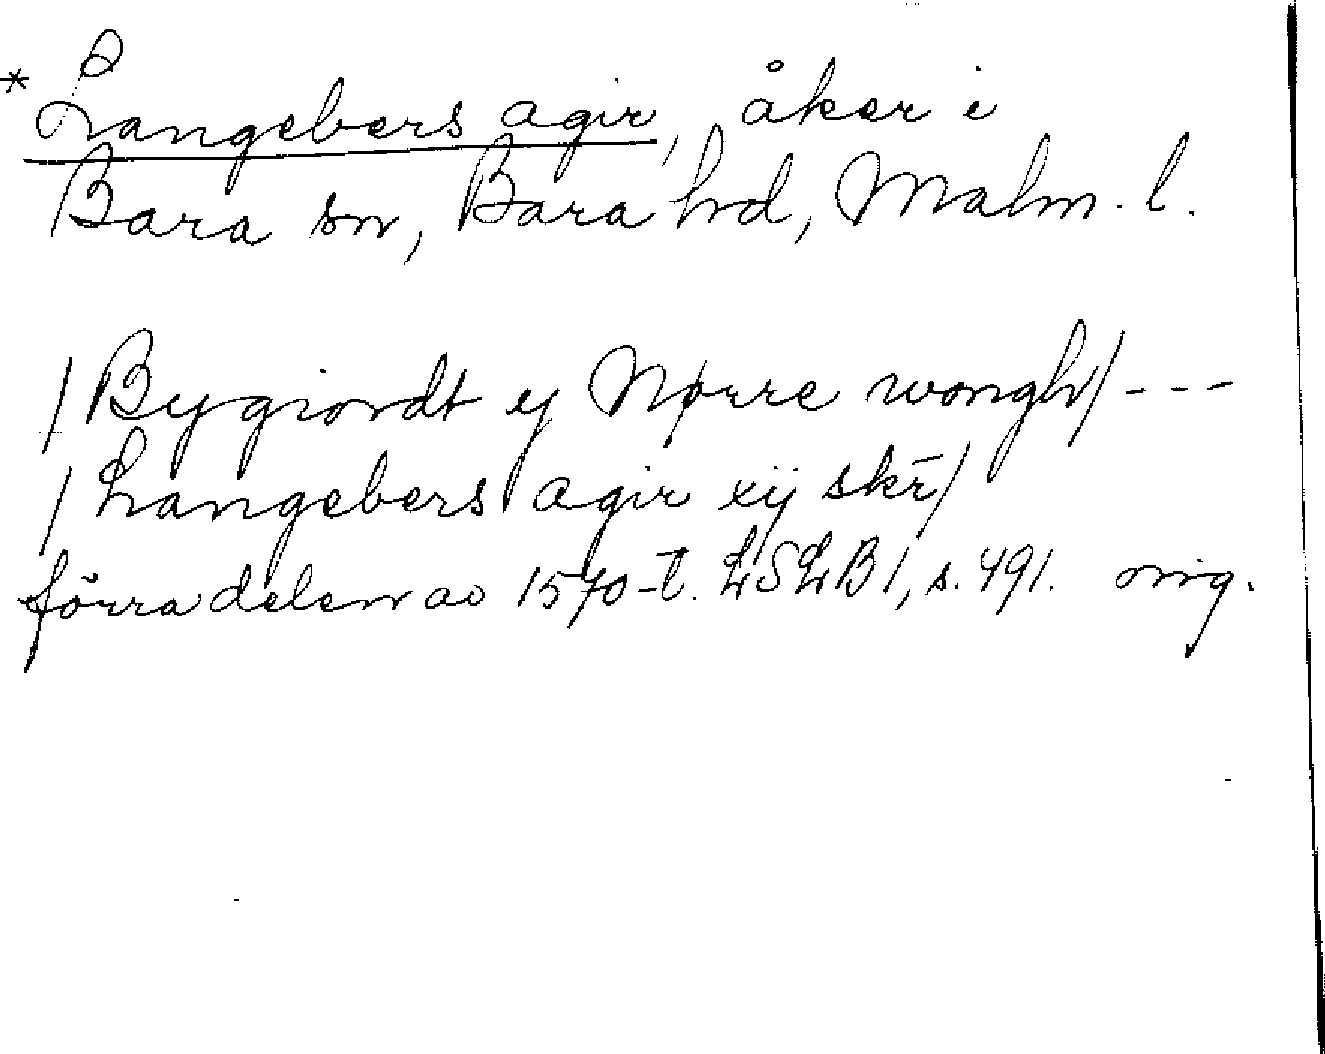 * Langebers agir, åker i
Bara sn, Bara hd, Malm. l.
/Bygiordt y Nørre wongh/ - - -
/Langebers agir xij skr̄/
förra delen av 1570-t. LSLB 1, s. 491. orig.